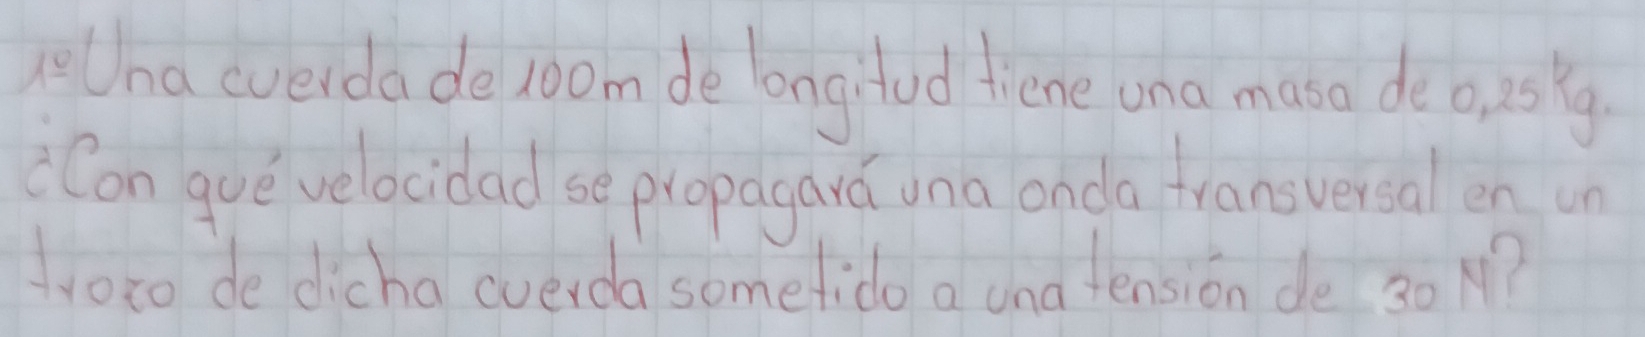 1º Una cuerda de 100m de longitud tiene una masa de 0,25Kg.
¿Con qué velocidad se propagará una onda transversal en un
trozo de dicha cuerda sometido a una tensión de 30 N?